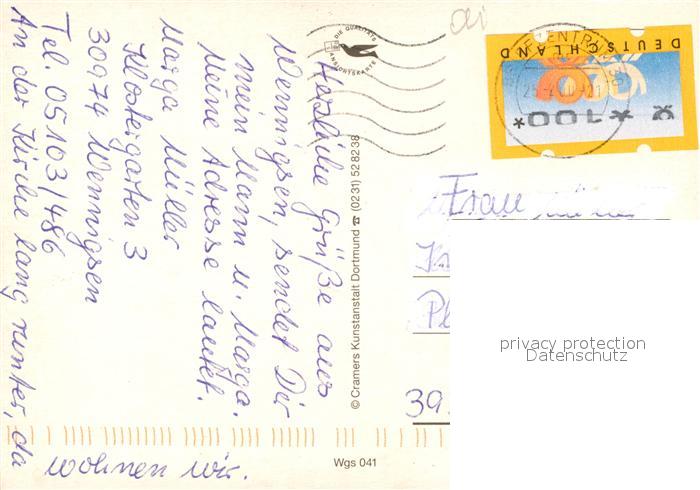 Herzliche Grüße aus
Wennigsen, sendet Dir
mein Mann u. Marga.
Meine Adresse lautet.
Marga Müller
Klostergarten 3
30974 Wennigsen
Tel. 05103/486
An der Kirche lang runter, da
wohnen wir.
DIE QUALITÄTS
ANSICHTSKARTE
© Cramers Kunstanstalt Dortmund ☎ (0231) 528238
Wgs 041
DEUTSCHLAND
*100*
Frau
39
privacy protection
Datenschutz